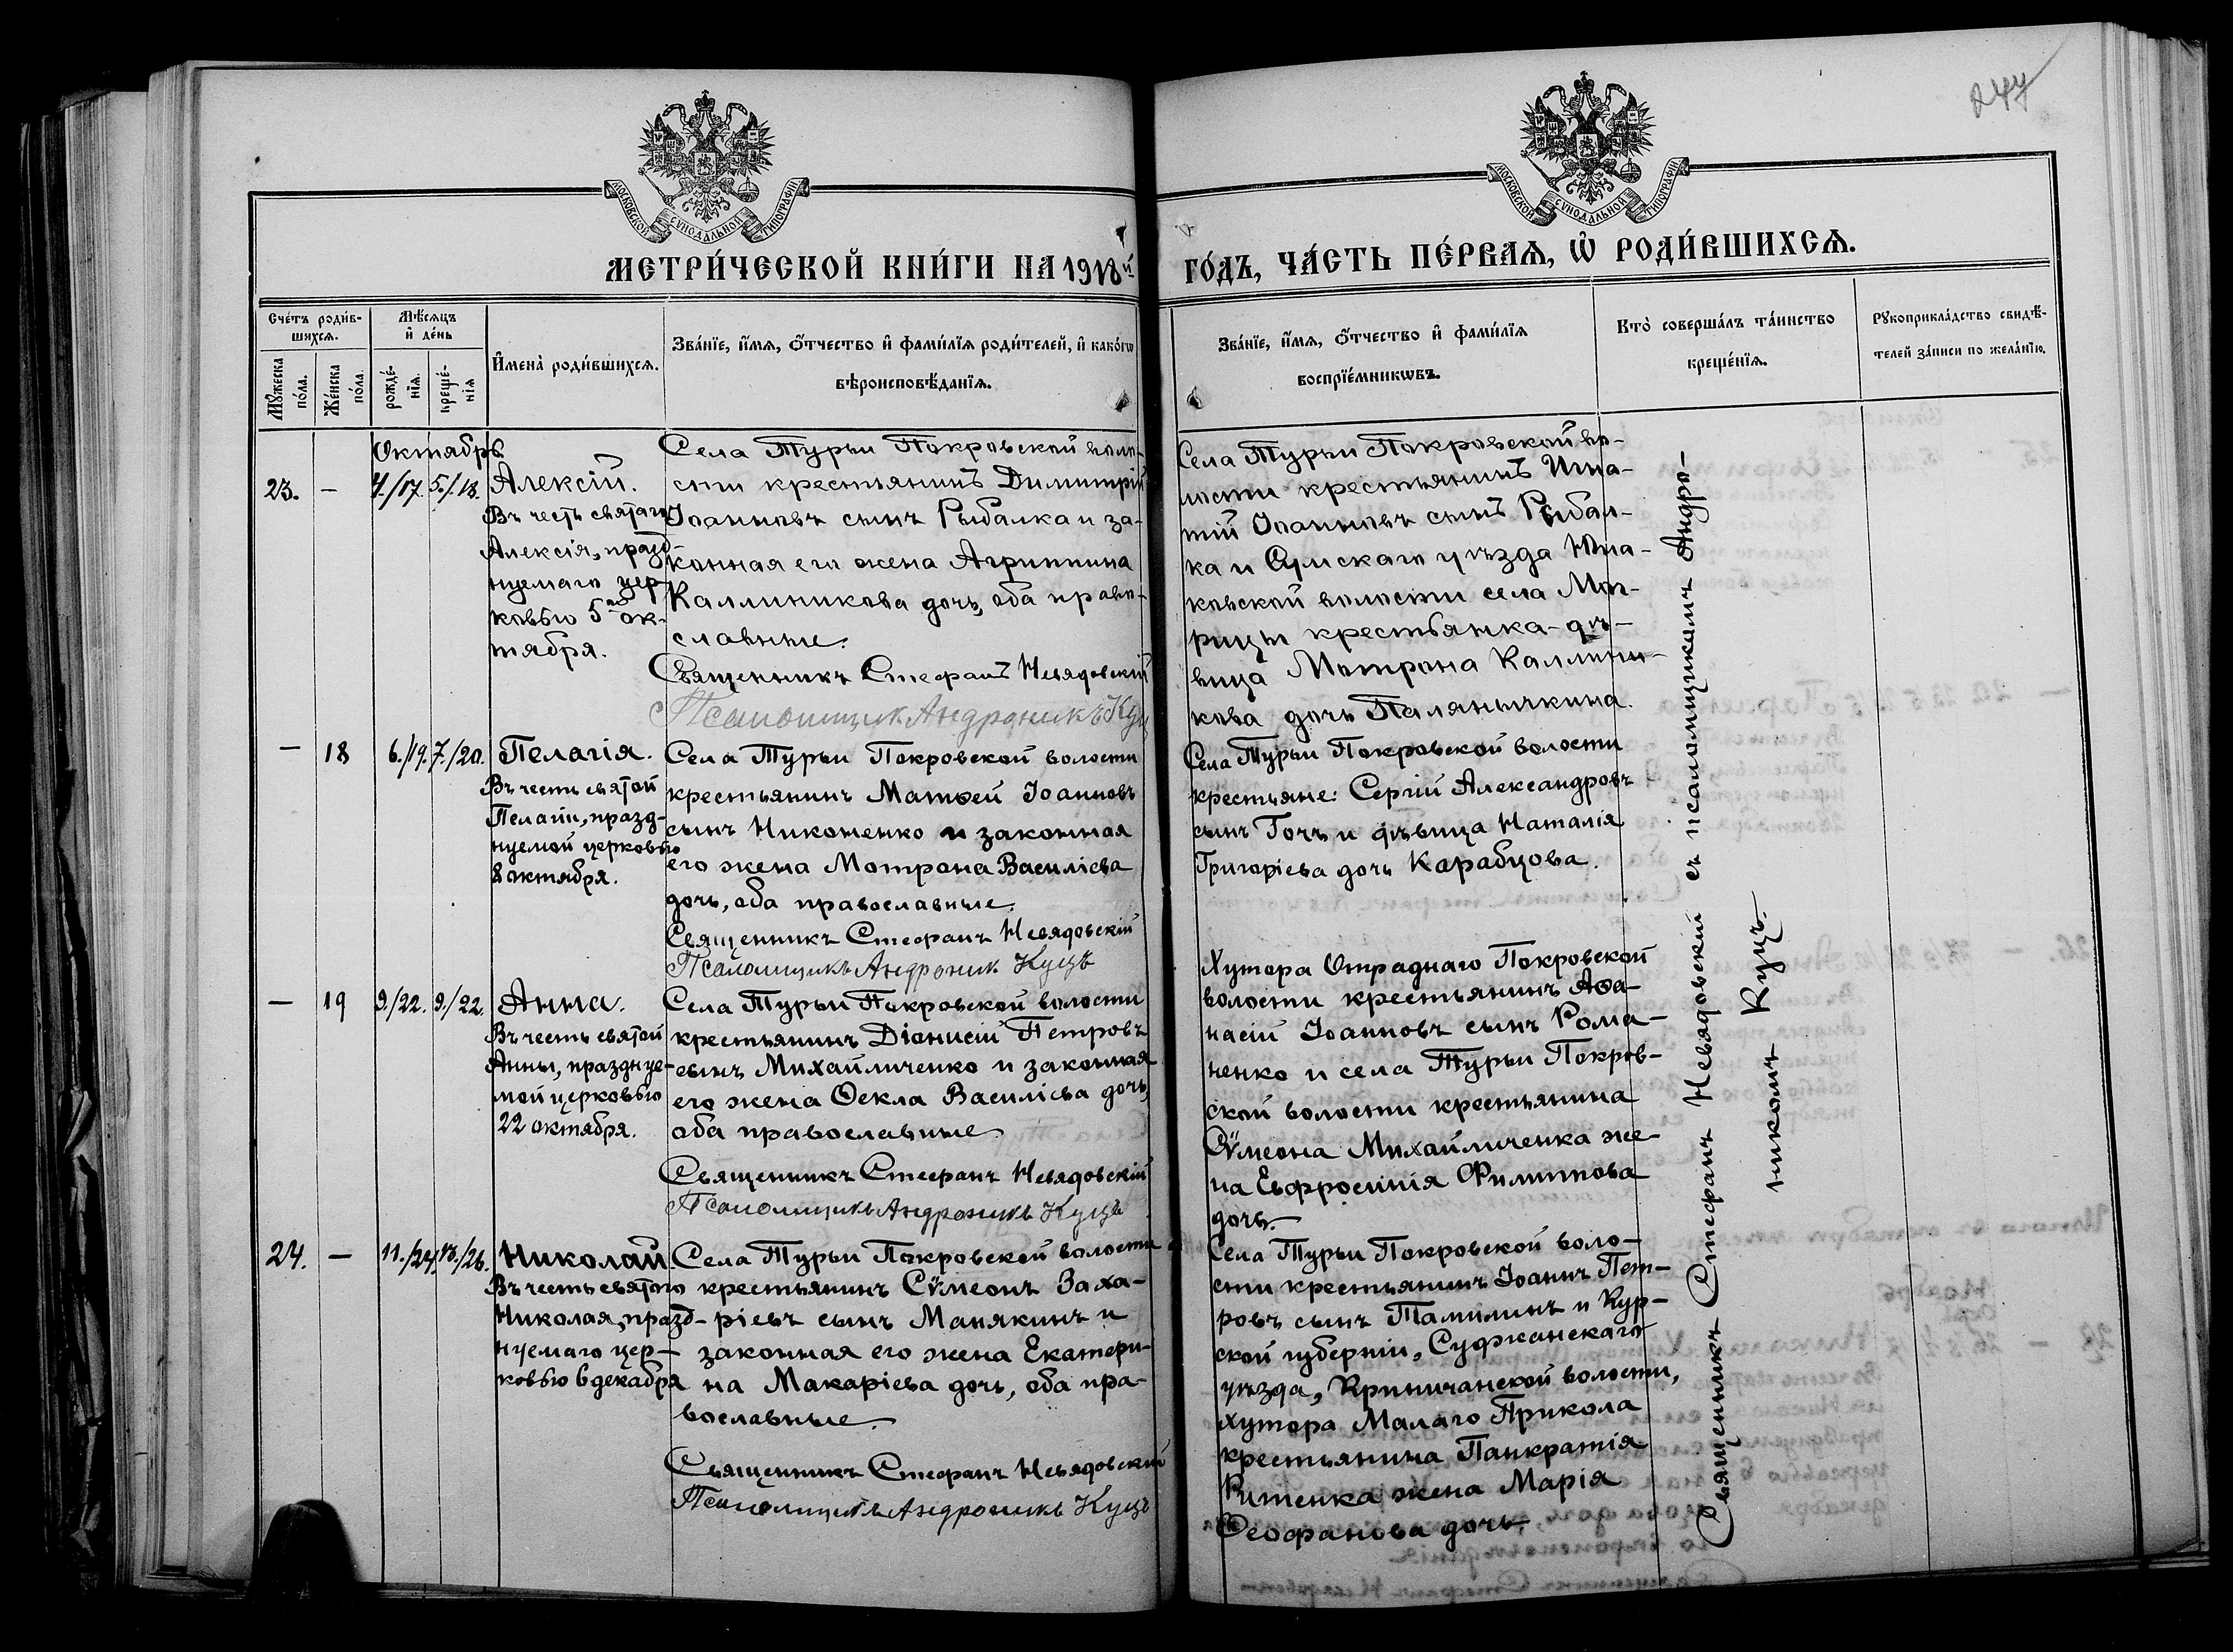 247
МОСКОВСКОЙ СѴНОДАЛЬНОЙ ТИПОГРАФІИ
МОСКОВСКОЙ СѴНОДАЛЬНОЙ ТИПОГРАФІИ
МЕТРИ́ЧЕСКОЙ КНИ́ГИ НА 1918й ГО́ДЪ, ЧА́СТЬ ПЕ́РВАѦ, Ѡ҆ РОДИ́ВШИХСѦ.
Счетъ роди́в-
шихсѧ.
Мꙋжеска по́ла.
Же́нска по́ла
Мѣ́сѧцъ
и҆ де́нь
рожде́-
нїѧ.
креще́-
нїѧ
И҆мена̀ роди́вшихсѧ.
Зва́нїе, и҆́мѧ, ѻ҆́тчество и҆ фами́лїѧ роди́телей, и҆ како́гѡ
вѣроисповѣ́данїѧ.
Зва́нїе, и҆́мѧ, ѻ҆́тчество и҆ фами́лїѧ
воспрїе́мникѡвъ.
Кто̀ соверша́лъ та́инство
креще́нїѧ.
Рꙋкоприкла́дство свидѣ́-
телей за́писи по жела́нїю.
Октябрь
23.
—
4./17.
5./18.
Алексій.
Въ честь святаго
Алексія, празд-
нуемаго цер-
ковью 5го ок-
тября.
Села Турьи Покровской воло-
сти крестьянинъ Димитрій
Іоанновъ сынъ Рыбалка и за-
конная его жена Агриппина
Каллиникова дочь, оба право-
славные.
Священникъ Стефанъ Невядовскій
Псаломщик Андроникъ Куц
Села Турьи Покровской во-
лости крестьянинъ Игна-
тій Іоанновъ сынъ Рыбал-
ка и Сумскаго уѣзда Юна-
ковской волости села Мог-
рицы крестьянка-дѣ-
вица Мотрона Каллини-
кова дочь Паляничкина.
—
18
6./19.
7./20.
Пелагія.
Въ честь святой
Пелагіи, празд-
нуемой церковью
8 октября.
Села Турьи Покровской волости
крестьянинъ Матѳей Іоанновъ
сынъ Никоненко и законная
его жена Мотрона Василіева
дочь, оба православные.
Священникъ Стефанъ Невядовскій
Псаломщикъ Андроник Куцъ
Села Турьи Покровской волости
крестьяне: Сергій Александровъ
сынъ Гочъ и дѣвица Наталія
Григоріева дочь Карабцова.
—
19
9./22.
9./22.
Анна.
Въ честь святой
Анны, празднуе-
мой церковью
22 октября.
Села Турьи Покровской волости
крестьянинъ Діонисій Петровъ
сынъ Михайличенко и законная
его жена Ѳекла Василіева дочь,
оба православные.
Священникъ Стефанъ Невядовскій
Псаломщикъ Андроникъ Куцъ
Хутора Отраднаго Покровской
волости крестьянинъ Аѳа-
насій Іоанновъ сынъ Рома-
ненко и села Турьи Покров-
ской волости крестьянина
Сѵмеона Михайличенка же-
на Евфросинія Филиппова
дочь.
24.
—
11./24.
13./26.
Николай
Въ честь святого
Николая, празд-
нуемаго цер-
ковью 6 декабря
Села Турьи Покровской волости
крестьянинъ Сѵмеонъ Заха-
ріевъ сынъ Манякинъ и
законная его жена Екатери-
на Макаріева дочь, оба пра-
вославные.
Священникъ Стефанъ Невядовскій
Псаломщикъ Андроникъ Куцъ
Села Турьи Покровской воло-
сти крестьянинъ Іоаннъ Пет-
ровъ сынъ Тамилинъ и Кур-
ской губерніи, Суджанскаго
уѣзда, Криничанской волости,
хутора Малаго Прикола
крестьянина Панкратія
Ритенка жена Марія
Ѳеофанова дочь.
Священникъ Стефанъ Невядовскій съ псаломщикомъ Андро-
никомъ Куцъ.